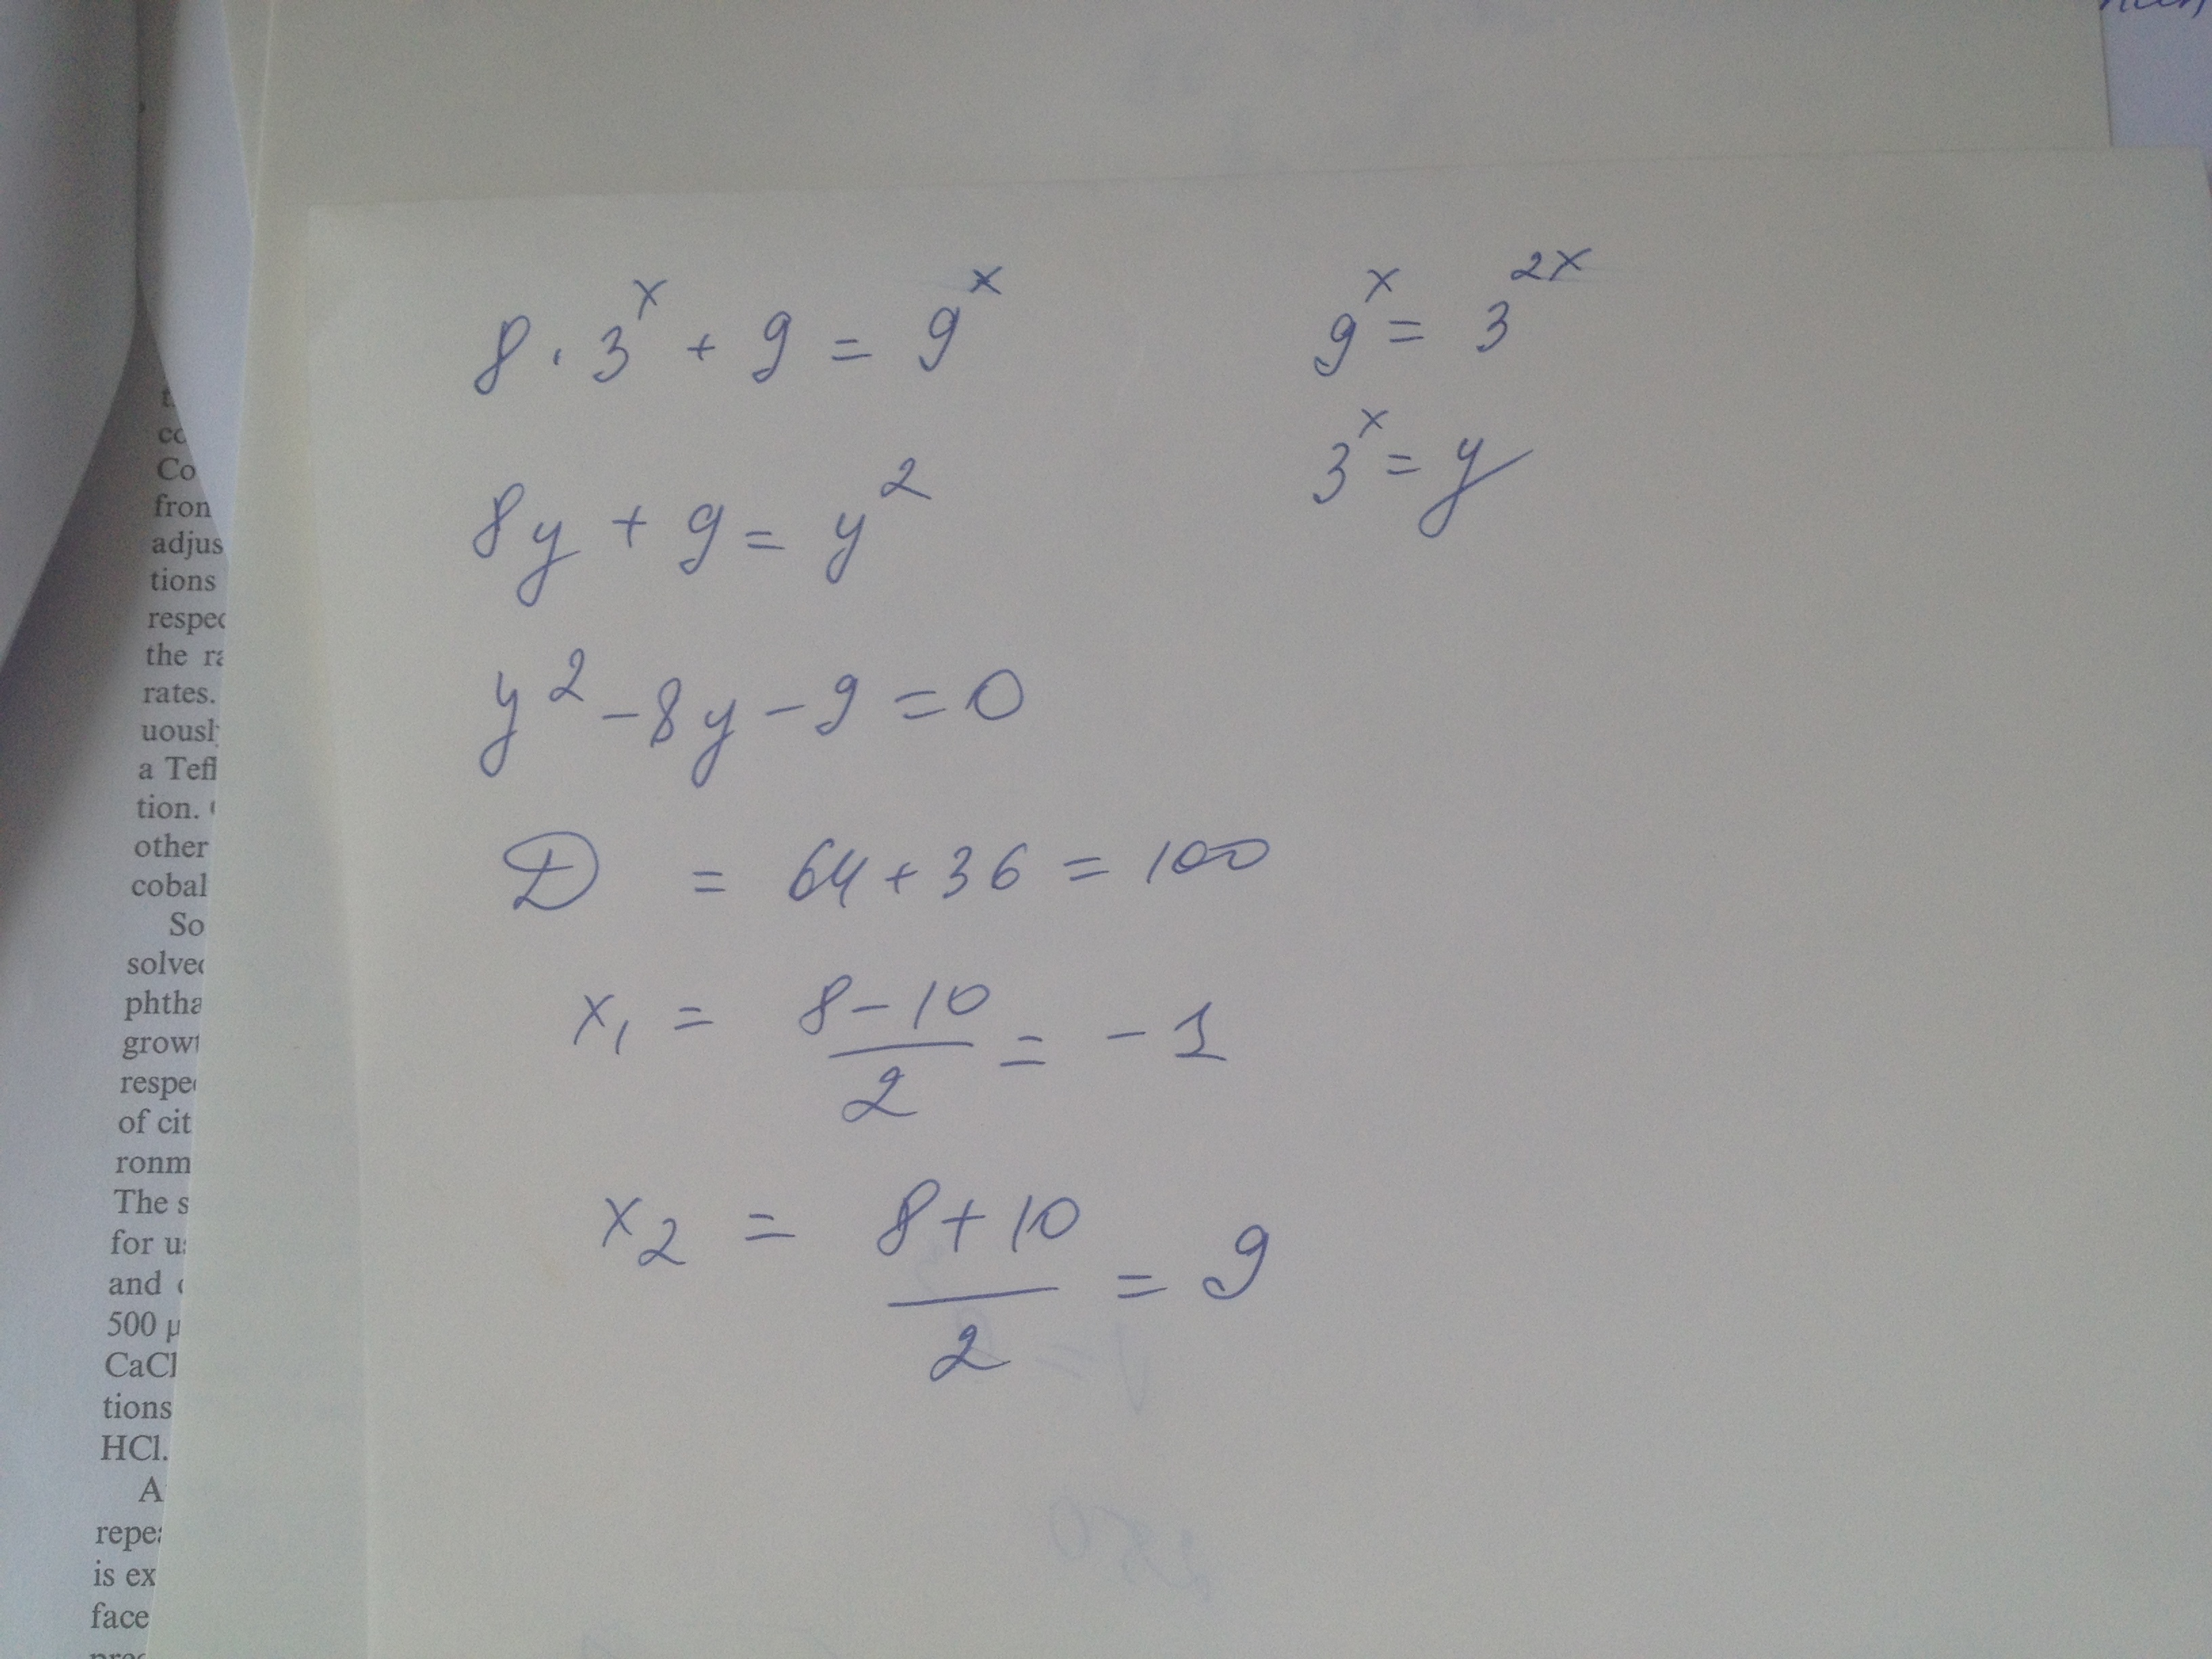 8 · 3^x + 9 = 9^x
9^x = 3^{2x}
3^x = y
8y + 9 = y^2
y^2 - 8y - 9 = 0
D = 64 + 36 = 100
x_1 = \frac{8 - 10}{2} = -1
x_2 = \frac{8 + 10}{2} = 9
Co
fron
adjus
tions
respec
the ra
rates.
uously
a Tefl
tion.
other
cobal
So
solved
phtha
growt
respe
of cit
ronm
The s
for u
and
500 µ
CaCl
tions
HCl.
A
repea
is ex
face